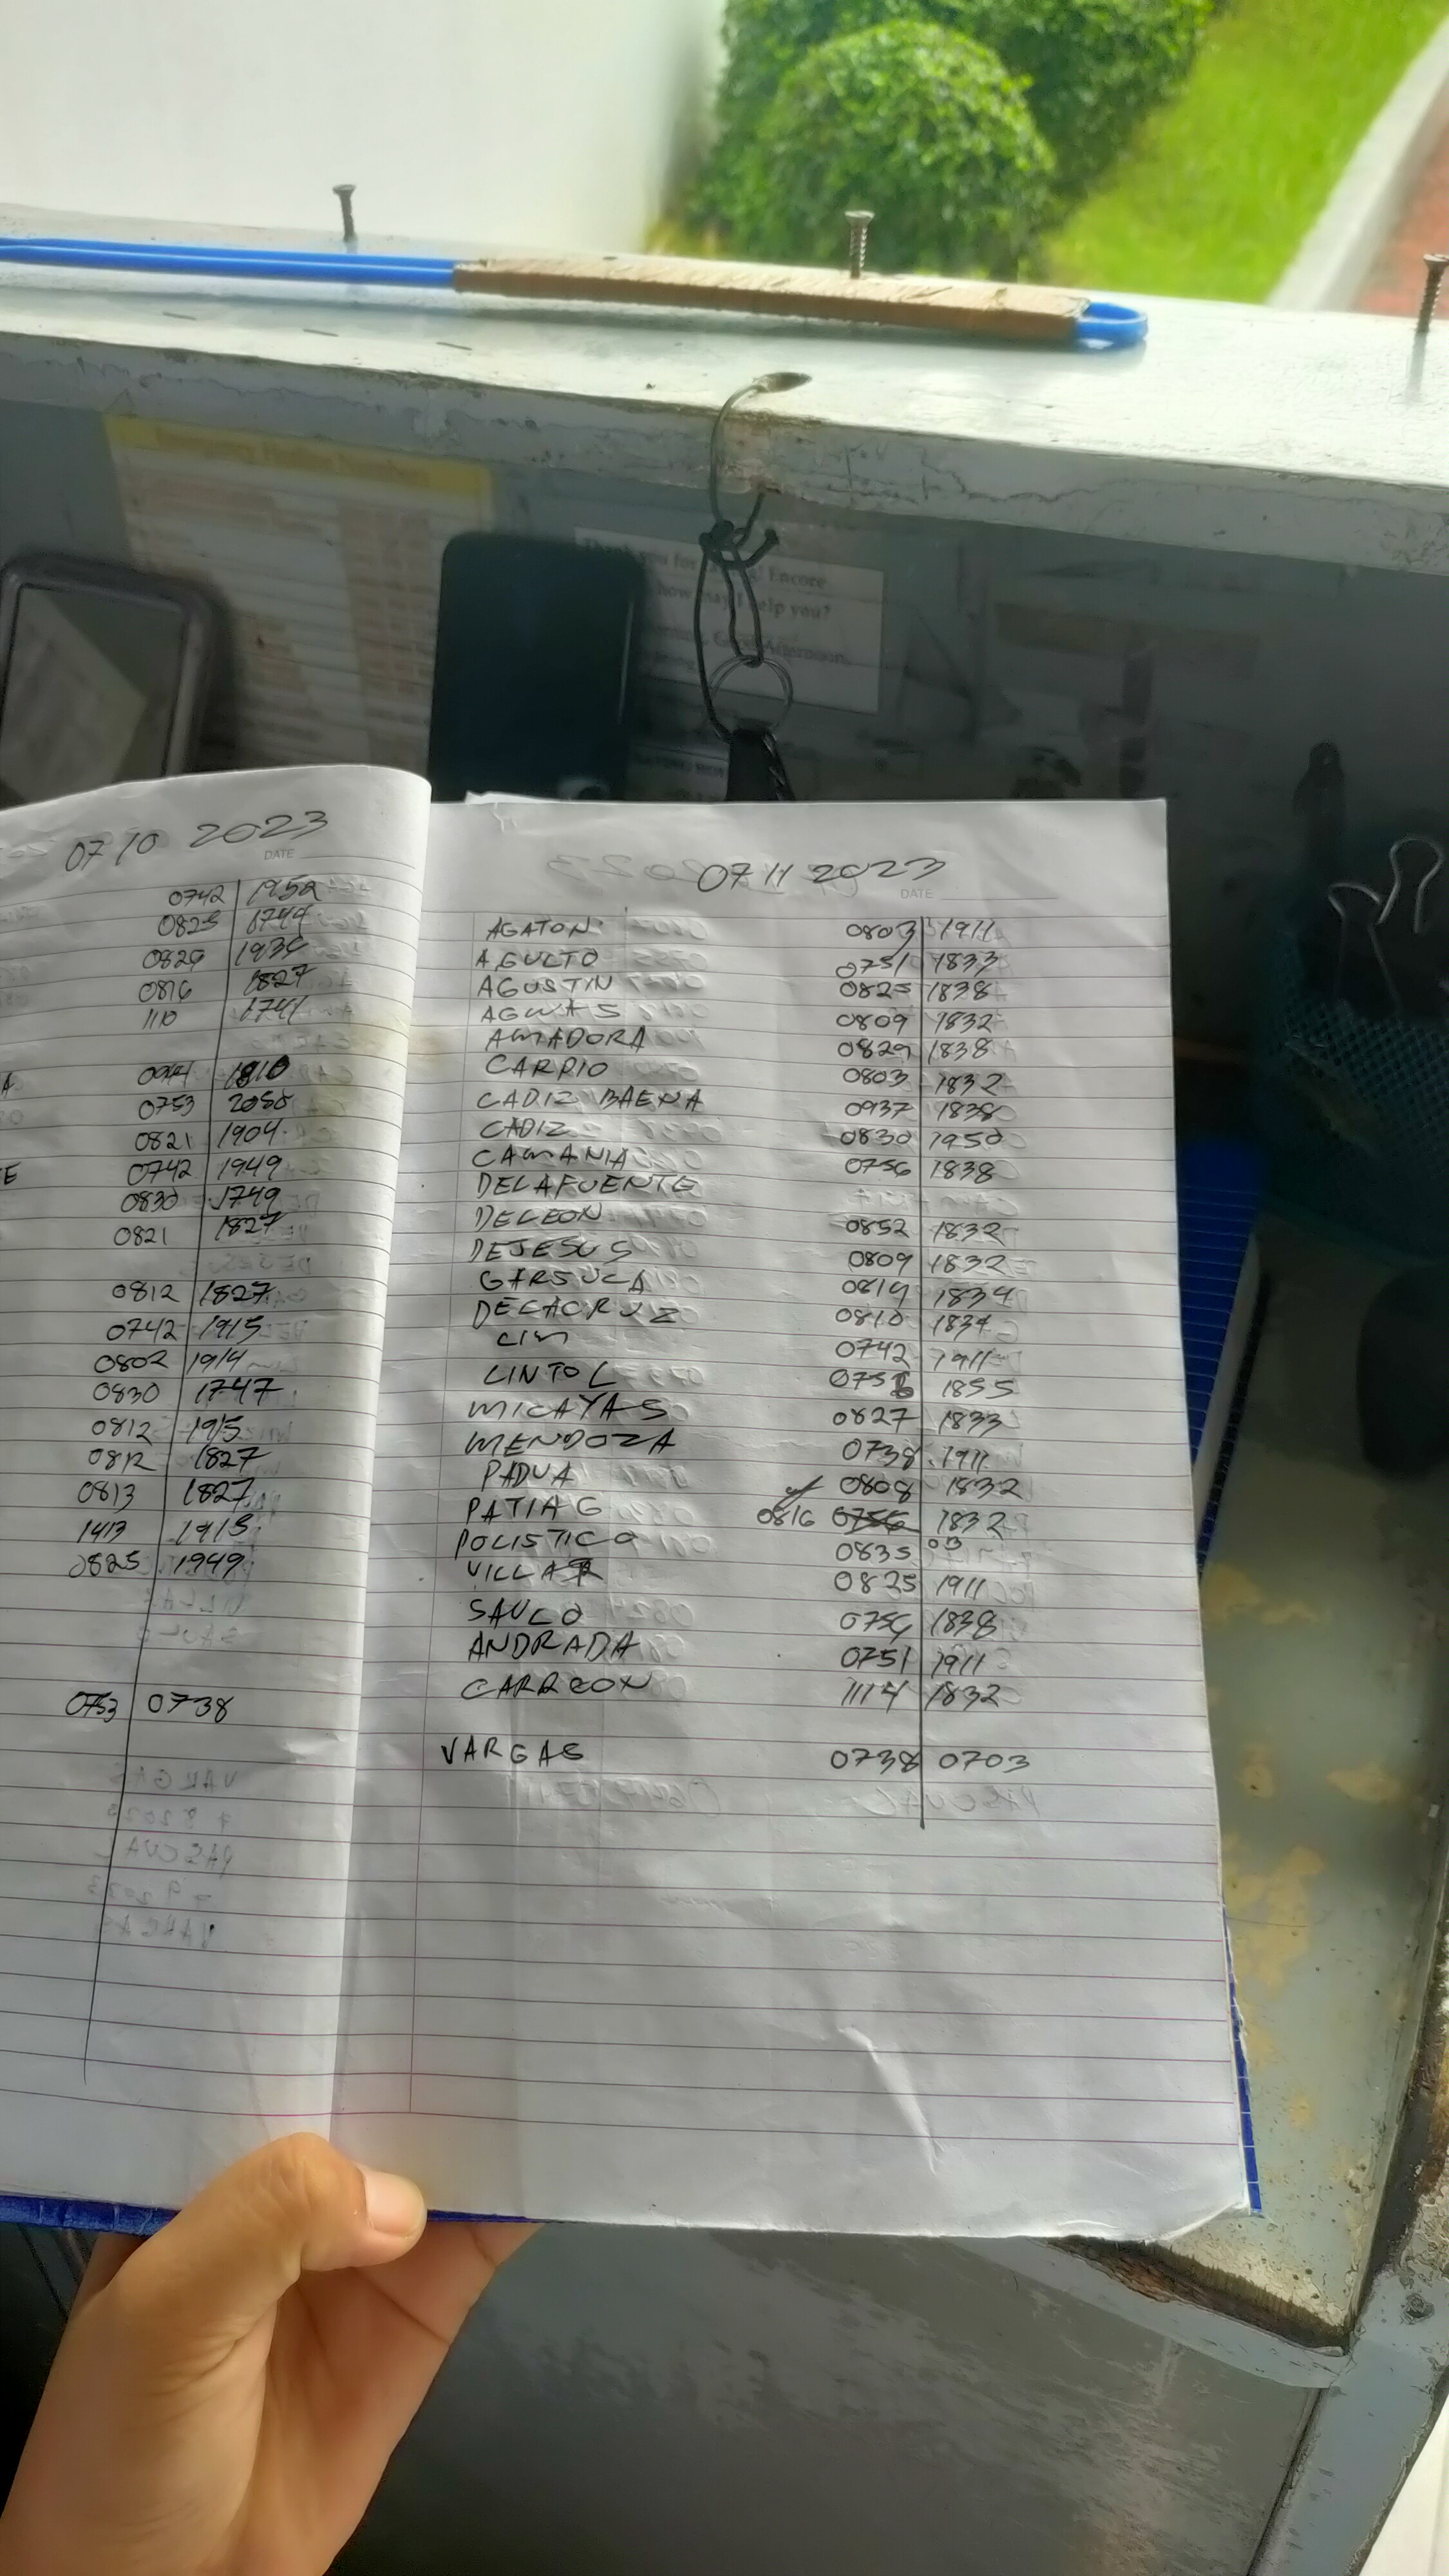 Emergency Hotline Number
Encore
how may I help you?
Good Afternoon,
07 10 2023
DATE
0742 1952
0825 1744
0829 1934
0816 1827
1110 1741
A 1810
0753
0821 1904
E 0742 1949
0830 1749
0821 1827
0812 1827
0742 1915
0802 1914
0830 1747
0812 1915
0812 1827
0813 1827
1413 1915
0825 1949
0753 0738
07 11 2023
DATE
AGATON 0803 1911
AGULTO 0751 1833
AGUSTIN 0825 1838
AGUAS 0809 1832
AMADORA 0829 1838
CARPIO 0803 1832
CADIZ BAENA 0937 1838
CADIZ 0830 1950
CAMANIA 0756 1838
DELAFUENTE
DELEON 0852 1832
DEJESUS 0809 1832
GARSULA 0819 1834
DELACRUZ 0810 1834
LIM 0742 1911
LINTOL 1855
MICAYAS 0827 1833
MENDOZA 0738 1911
PADUA 0808 1832
PATIAG 0816 0756 1832
POLISTICO 0835
VILLAR 0825 1911
SAULO 0756 1838
ANDRADA 0751 1911
CARREON 1114 1832
VARGAS 0738 0703